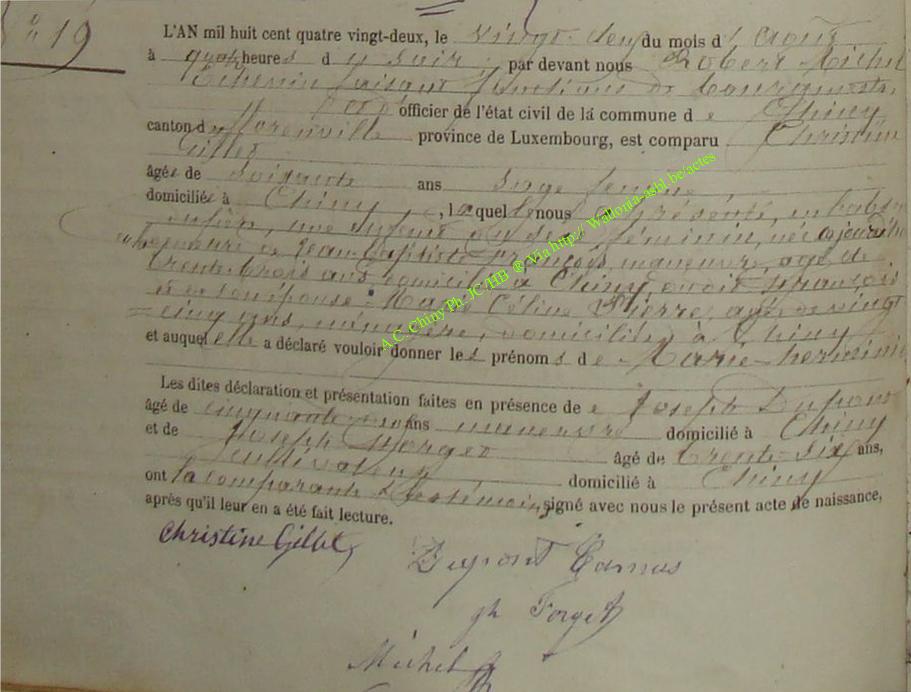 N° 19
L'AN mil huit cent quatre vingt-deux, le vingt-deux du mois d'août
à quatre heures du soir, par devant nous Robert Michel
Echevin faisant fonctions de bourgmestre
officier de l'état civil de la commune de Chiny
canton de Florenville province de Luxembourg, est comparu Christine
Gillet
âgée de soixante ans sage femme
domiciliée à Chiny, laquelle nous a présenté, 
une enfant du sexe féminin, née aujourd'hui
de Jean-Baptiste François, manœuvre, âgé de
trente trois ans, domicilié à Chiny
et de son épouse Marie Céline Pierre, âgée de vingt
cinq ans, ménagère, domiciliés à Chiny
et auquel elle a déclaré vouloir donner les prénoms de Marie-herminie
Les dites déclaration et présentation faites en présence de Joseph Dupont
âgé de cinquante ans manœuvre domicilié à Chiny
et de Joseph Forget âgé de trente-six ans,
cultivateur domicilié à Chiny
ont la comparante & les témoins signé avec nous le présent acte de naissance,
après qu'il leur en a été fait lecture.
Christine Gillet
Dupont Camus
jh Forget
Michel R
A.C. Chiny Ph. JC HB ® Via http:// Wallonia-asbl.be/actes